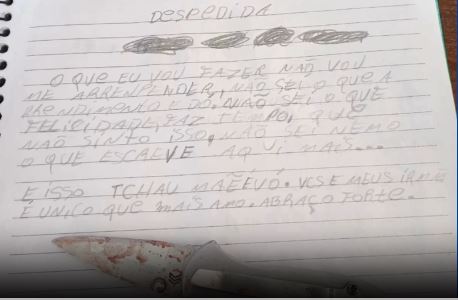 Despedida
O QUE EU VOU FAZER NÃO VOU
ME ARREPENDER, NÃO SEI O QUE A
PRENDIMENTO E DÓ. NÃO SEI O QUE
FELICIDADE, FAZ TEMPO, QUE
NÃO SINTO ISSO, NÃO SEI NEMO
O QUE ESCREVE AQUI MAIS...
E ISSO TCHAU MÃE E VÓ. VCS E MEUS IRMÃ
É UNICO QUE MAIS AMO. ABRAÇO FORTE.